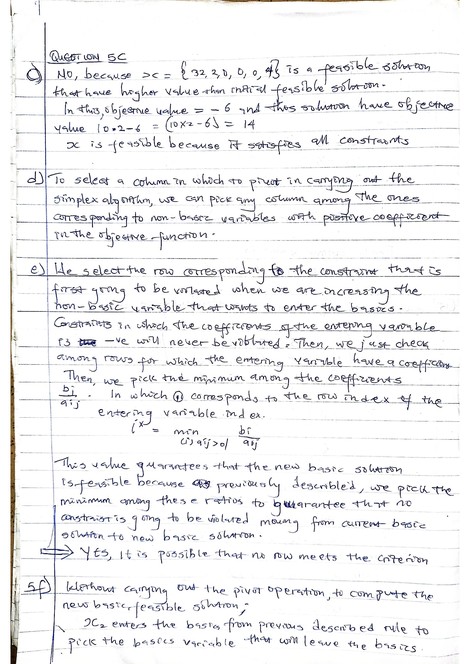 QUESTION 5C
c) No, because x = {32, 2, 0, 0, 0, 4} is a feasible solution
that have higher value than initial feasible solution.
In this, objective value = -6 and this solution have objective
value 10•2-6 = (10x2-6) = 14
x is feasible because it satisfies all constraints
d) To select a column in which to pivot in carrying out the
simplex algorithm, we can pick any column among the ones
corresponding to non-basic variables with positive coefficient
in the objective function.
e) We select the row corresponding to the constraint that is
first going to be violated when we are increasing the
non-basic variable that wants to enter the basics.
Constraints in which the coefficients of the entering variable
is -ve will never be violated. Then, we just check
among rows for which the entering variable have a coefficient
Then, we pick the minimum among the coefficients
bi/aij. In which i corresponds to the row index of the
entering variable index.
i* = min (i) aij>0/ bi/aij
This value guarantees that the new basic solution
is feasible because as previously described, we pick the
minimum among these ratios to guarantee that no
constraint is going to be violated moving from current basic
solution to new basic solution.
⇒ Yes, it is possible that no row meets the criterion
5f) Without carrying out the pivot operation, to compute the
new basic feasible solution;
x2 enters the basis from previous described rule to
pick the basics variable that will leave the basics.